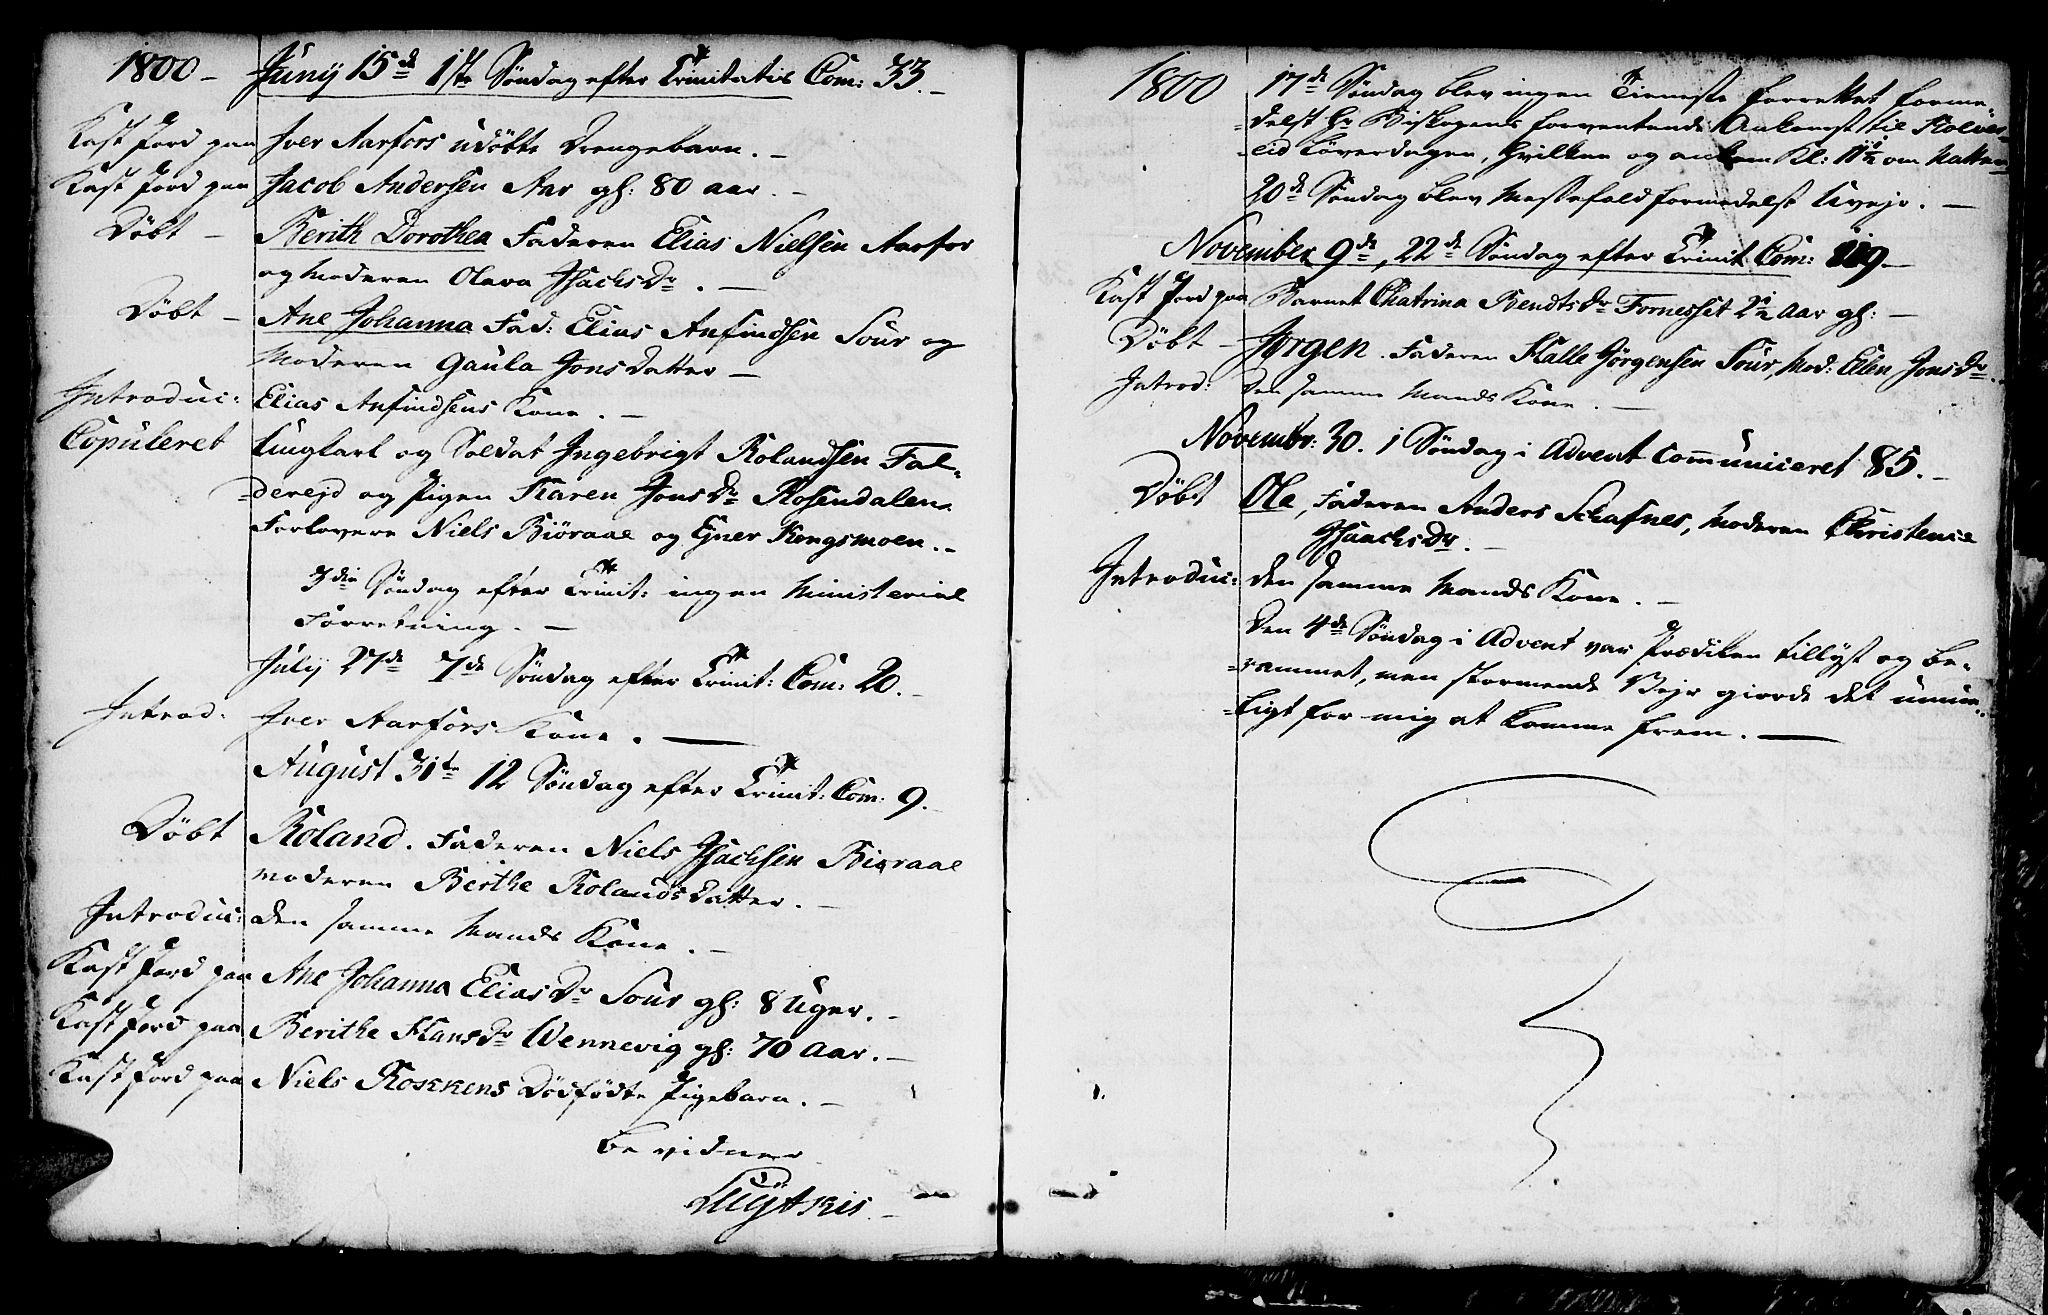 1800 – Junij 15de 1ste Søndag efter Trinitatis Com: 33. –
Kast Jord paa Iver Aarfors udøbte Drengebarn. –
Kast Jord paa Jacob Andersen Aar gl: 80 aar. –
Døbt – Berith Dorothea Faderen Elias Nielsen Aarfor
og Moderen Olava Isachs Dr. –
Døbt – Ane Johanna Fad: Elias Anfindsen Sour og
Moderen Gaula Jons Datter –
Introduc: Elias Anfindsens Kone. –
Copuleret Ungkarl og Soldat Ingebrigt Rolandsen Fal-
-derejd og Pigen Karen Jons Dr Rosendalen.
Forlovere Niels Biöraae og Ejner Kongsmoen. –
3die Søndag efter Trinit: ingen Ministerial
Forretning. –
Julij 27de 7de Søndag efter Trinit: Com: 20. –
Introd: Iver Aarfors Kone. –
August 31te 12 Søndag efter Trinit: Com: 9. –
Døbt Roland. Faderen Niels Isachsen Biöraae
Moderen Berthe Rolands Datter. –
Introduc: den samme Mands Kone. –
Kast Jord paa Ane Johanna Elias Dr Sour gl: 8 Uger. –
Kast Jord paa Berithe Hans Dr Wennevig gl: 70 Aar. –
Kast Jord paa Niels Roskens Dødfødte Pigebarn. –
bevidner
1800 17de Søndag blev ingen Tieneste forrettet forme-
-delst Hr Biskopens forventende Ankomst til Kolver-
-eid Löverdagen, hvilken og ankom Kl: 11½ om Natten
20de Søndag blev Messefald formedelst Uvejr. –
November 9de, 22de Søndag efter Trinit: Com: 119. –
Kast Jord paa Barnet Chatrina Bendts Dr Fornesset 2½ Aar gl: –
Døbt – Jørgen. Faderen Halle Jörgensen Sour, Mod: Ellen Jons Dr. –
Introd: den samme Mands Kone. –
Novembr: 30. 1 Søndag i Advent Communiceret 85. –
Døbt Ole, Faderen Anders Schafnes, Moderen Christence
Isaachs Dr. –
Introduc: den samme Mands Kone. –
Den 4de Søndag i Advent var Prædiken tillyst og be-
-rammet, men stormende Vejr giorde det umue-
-ligt for mig at komme frem. –